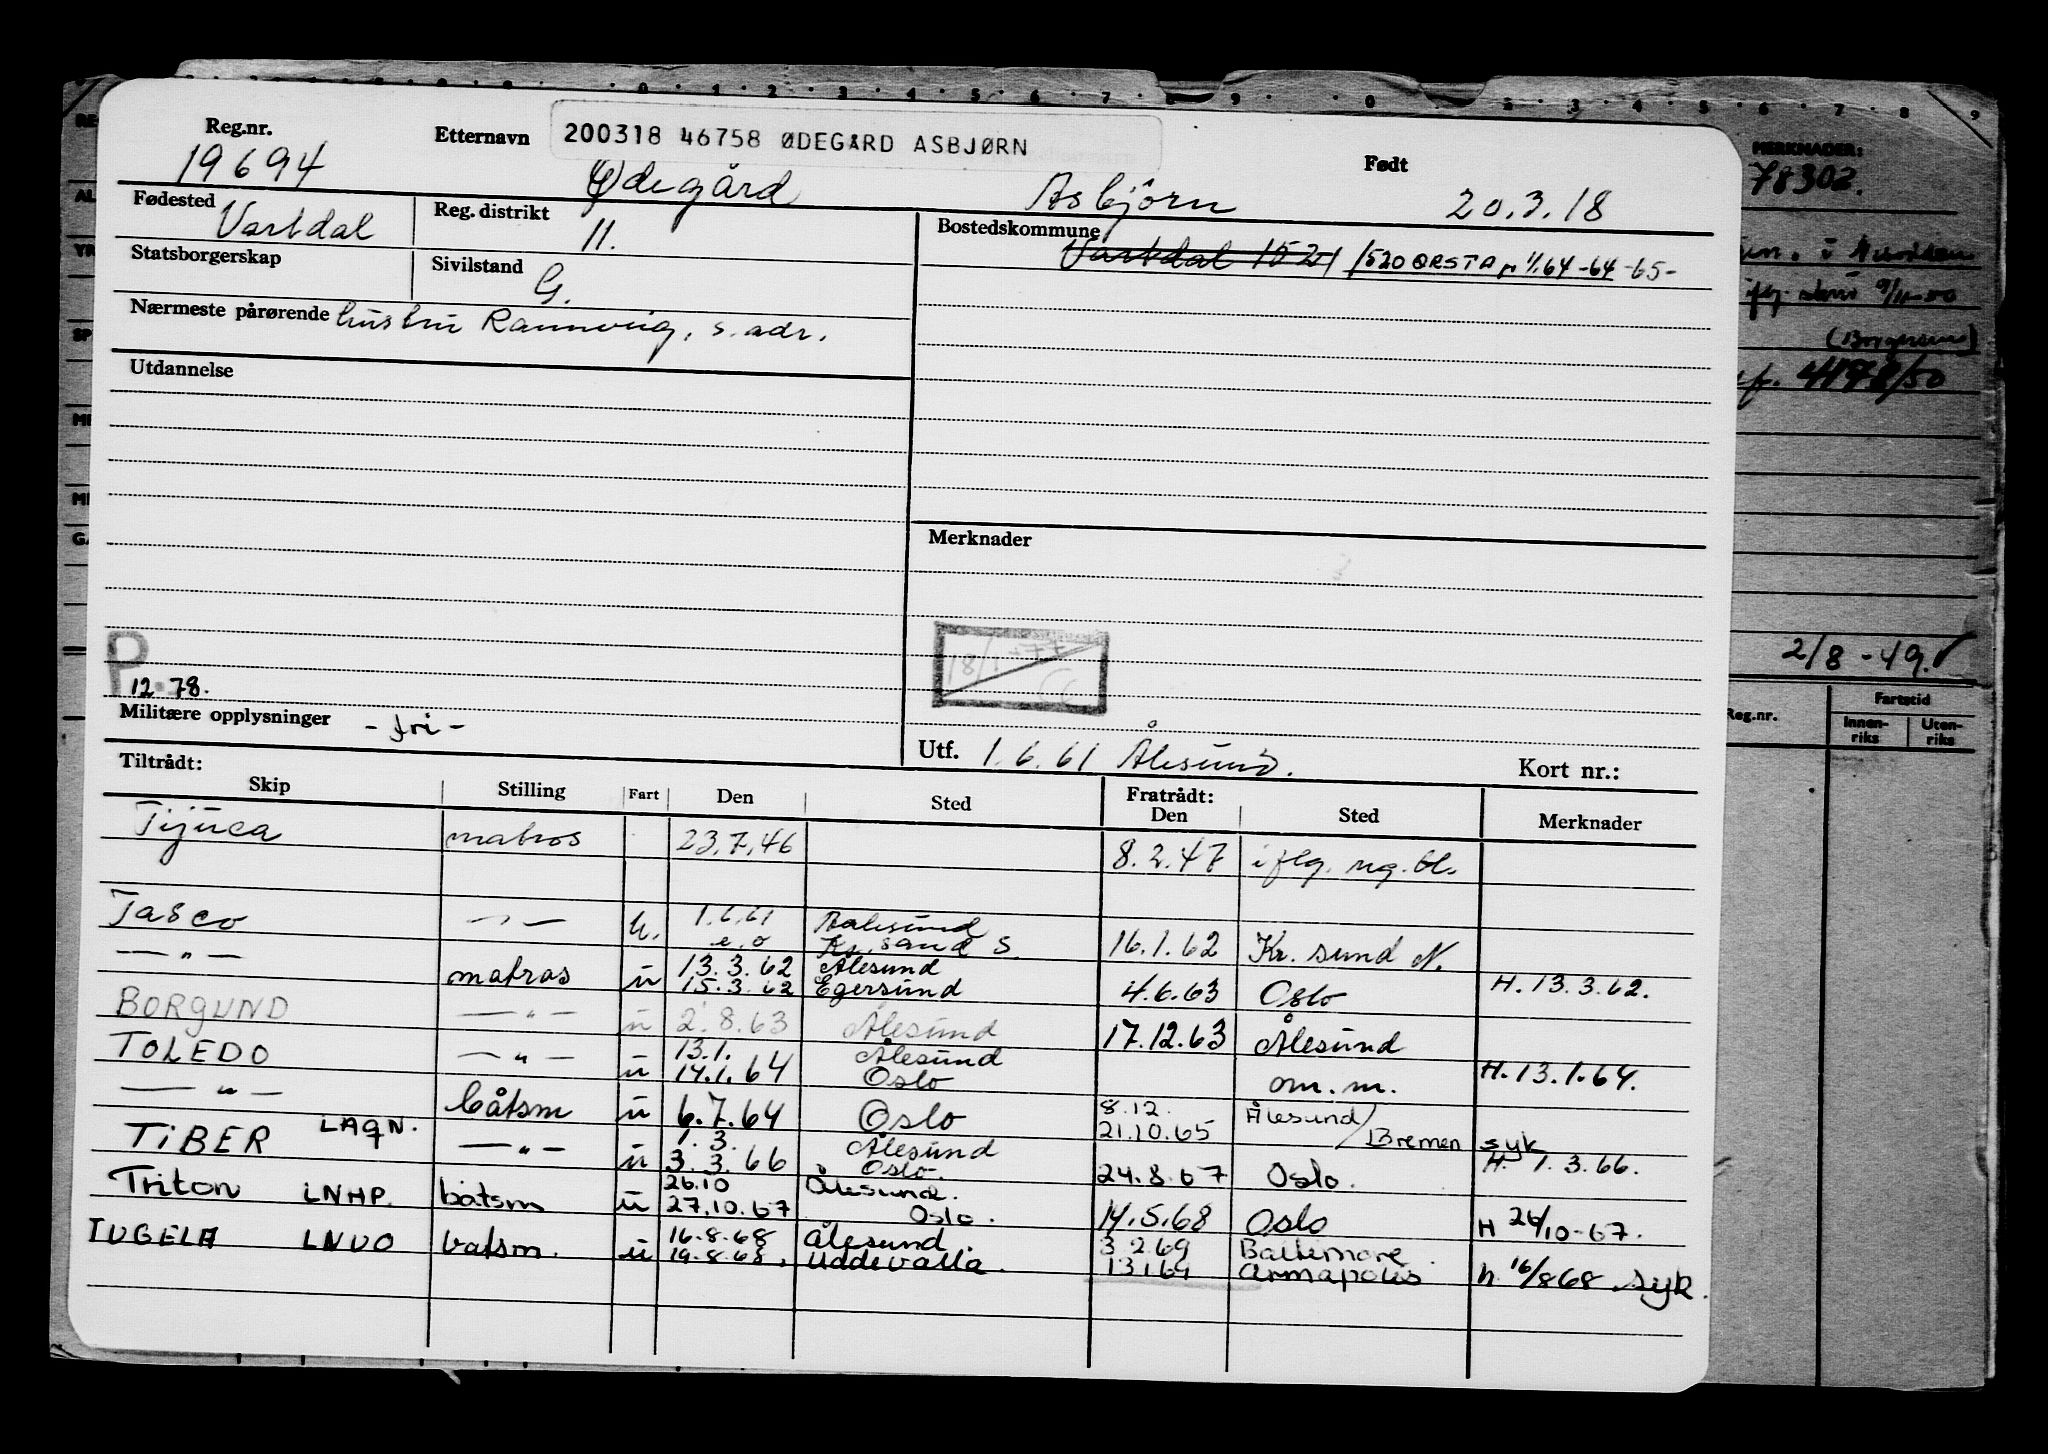 Reg.nr. 19694
Etternavn 200318 46758 ØDEGÅRD ASBJØRN
Ødegård Asbjörn
Født 20.3.18
Fødested Vartdal
Reg. distrikt 11.
Bostedskommune Vartdal 1521 1520 ØRSTA pr 1/1.64-64-65-
Statsborgerskap
Sivilstand G.
Nærmeste pårørende hustru Rannveig, s. adr.
Utdannelse
Merknader
18/1-77
P.
12.78.
Militære opplysninger -fri-
Utf. 1.6.61 Ålesund.
Kort nr.:
Tiltrådt: Fratrådt:
Skip Stilling Fart Den Sted Den Sted Merknader
Tijuca matros 23.7.46 8.2.47 iflg. rg. bl.
Tasco — " — u. 1.6.61 Aalesund
e.o Kr.sand S. 16.1.62 Kr. sund N.
— " — matros u 13.3.62 Ålesund
15.3.62 Egersund 4.6.63 Oslo H. 13.3.62.
BORGUND — " — u 2.8.63 Ålesund 17.12.63 Ålesund
TOLEDO — " — u 13.1. Ålesund
14.1.64 Oslo om. m. H. 13.1.64.
— " — båtsm u 6.7.64 Oslo 8.12. Ålesund/
21.10.65 Bremen syk
TIBER LAQN. — " — u 1.3. Ålesund
3.3.66 Oslo. 24.8.67 Oslo. H. 1.3.66.
Triton LNHP. båtsm u 26.10 Ålesund.
27.10.67 Oslo. 14.5.68 Oslo H 26/10-67.
TUGELA LNVO batsm. u 16.8.68 Ålesund. 3.2.69 Baltimore
19.8.68, Uddevalla. 13.1.69 Annapolis h 16/868 syk.
MERKNADER:
78302.
(Borgersen)
4178/50
2/8-49.
Reg.nr.
Fartstid
Innen-
riks
Uten-
riks